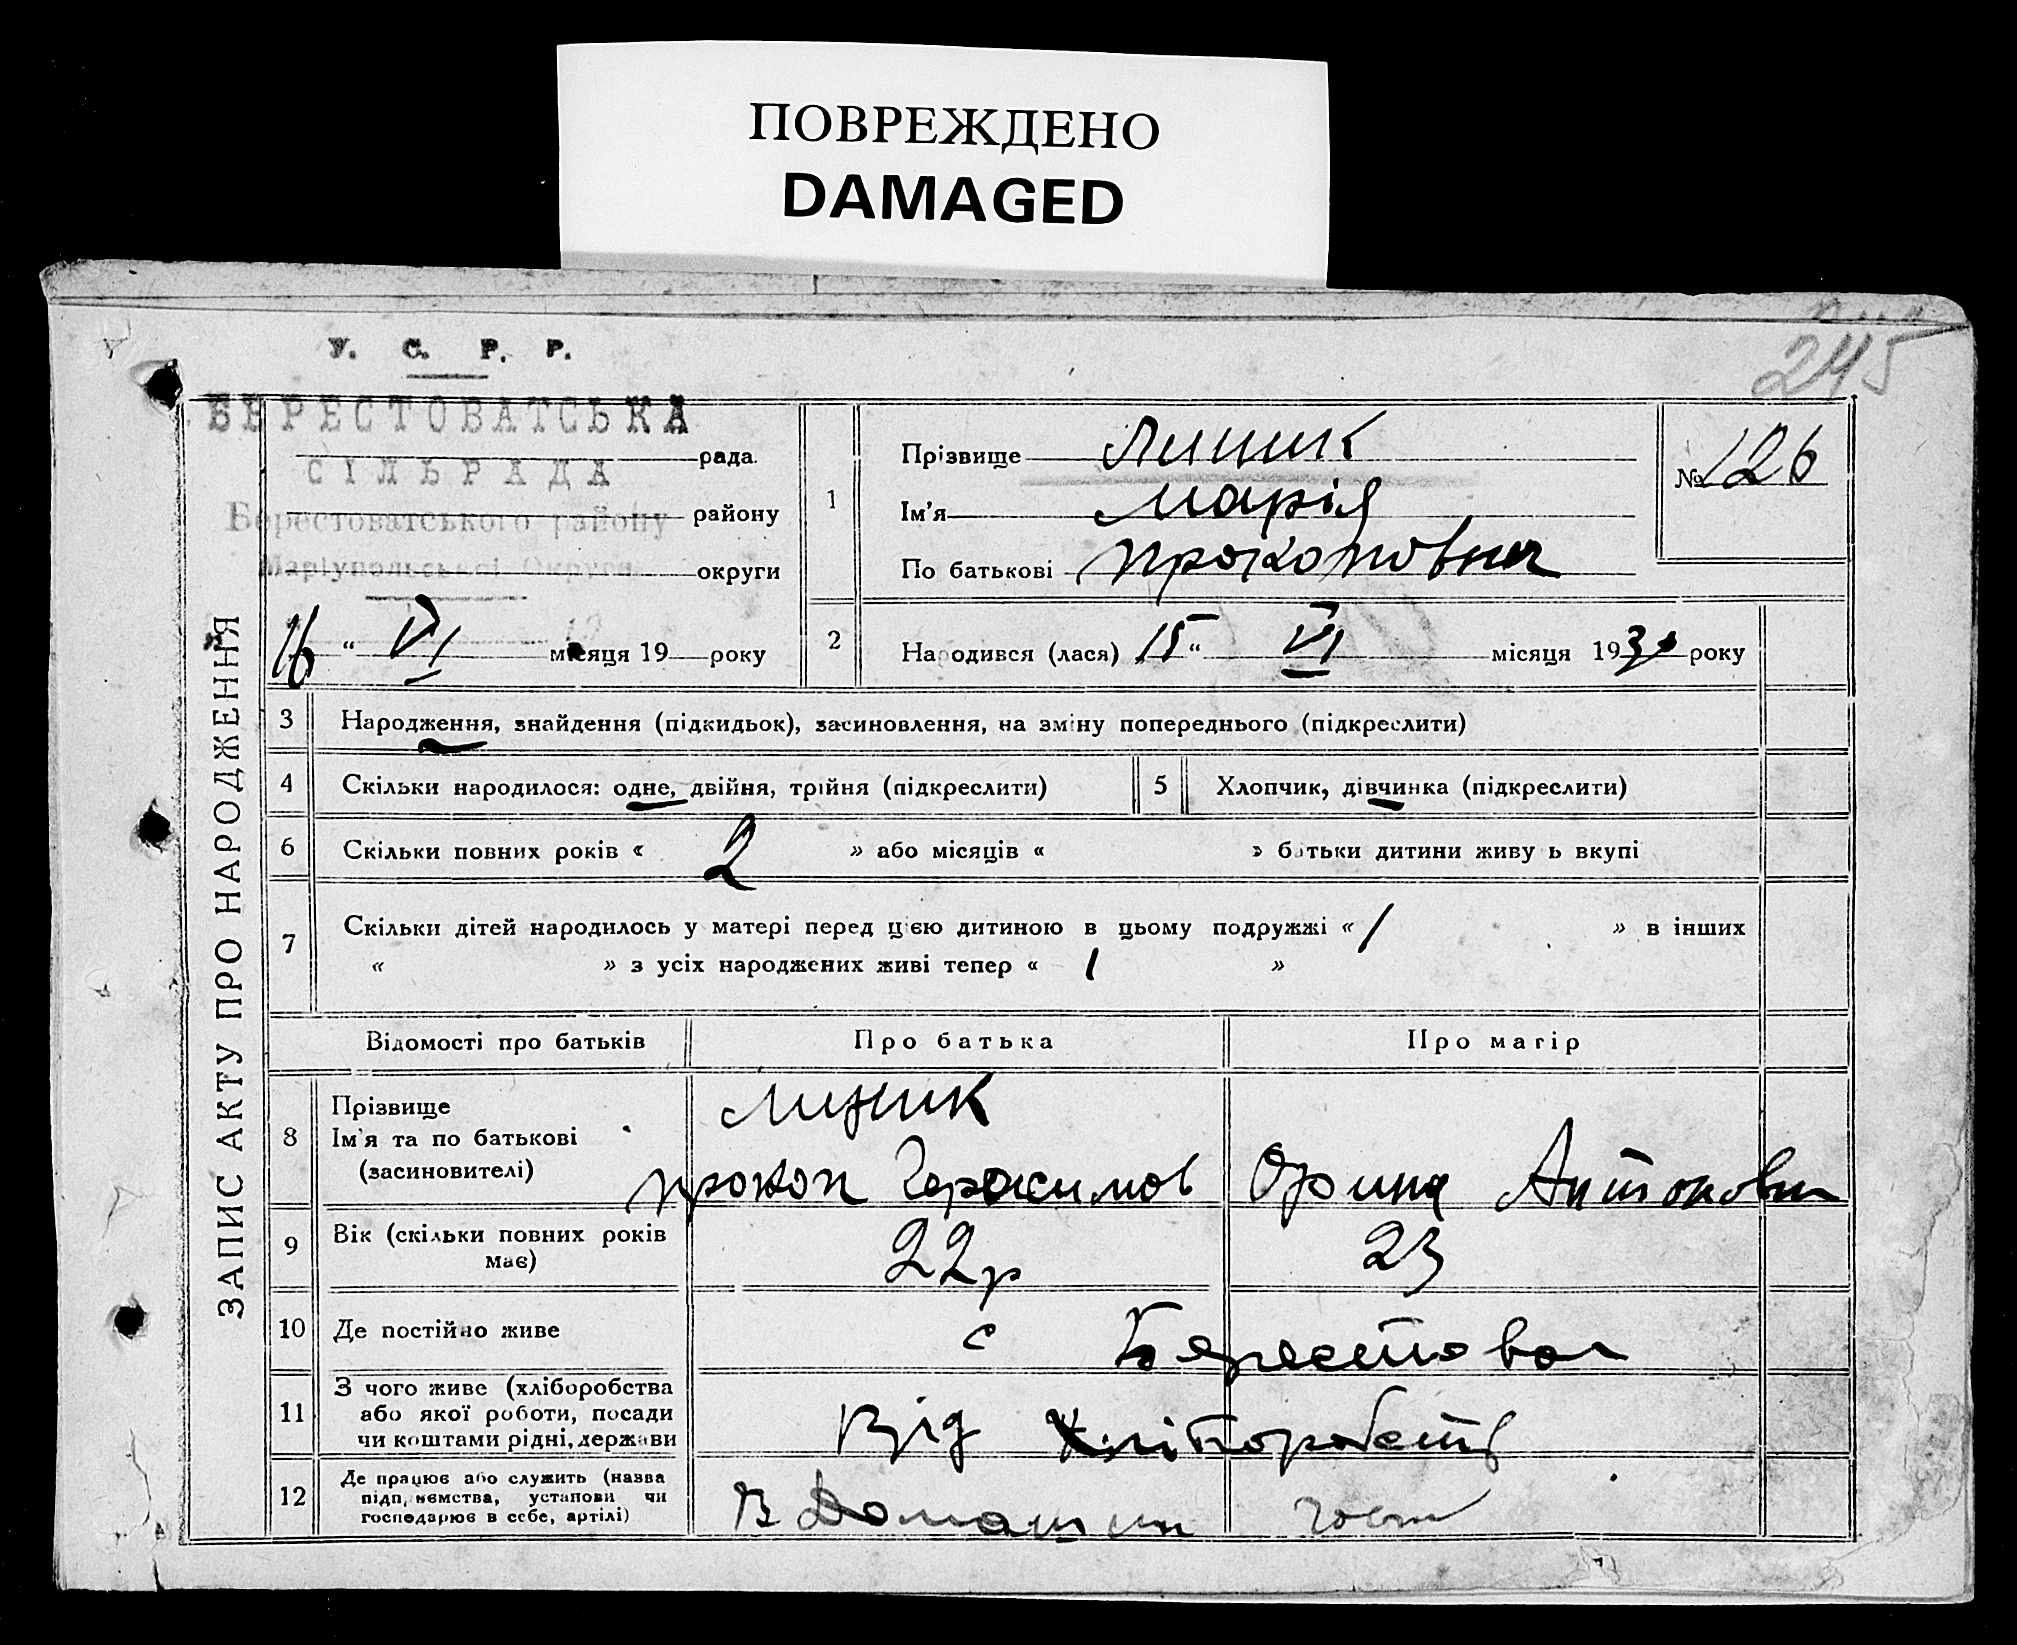 ПОВРЕЖДЕНО
DAMAGED
245
У. С. Р. Р.
БЕРЕСТОВАТСЬКА
рада
СІЛЬРАДА
Берестоватського району
району
Маріупольської Округи
округи
16 " VI місяця 19 року
ЗАПИС АКТУ ПРО НАРОДЖЕННЯ
1
Прізвище
Ім'я Марія
По батькові Прокоповна
№ 126
2 Народився (лася) 15 " VI місяця 1930 року
3 Народження, знайдення (підкидьок), засиновлення, на зміну попереднього (підкреслити)
4 Скільки народилося: одне, двійня, трійня (підкреслити)
5 Хлопчик, дівчинка (підкреслити)
6 Скільки повних років « 2 » або місяців « » батьки дитини живуть вкупі
7 Скільки дітей народилось у матері перед цією дитиною в цьому подружжі « 1 » в інших
« » з усіх народжених живі тепер « 1 »
Відомості про батьків Про батька Про матір
8 Прізвище
Ім'я та по батькові
(засновителі)
Прокоп Герасимов Орина Антоновн
9 Вік (скільки повних років
має)
22 р 23
10 Де постійно живе с Берестова
11 З чого живе (хліборобства
або якої роботи, посади
чи коштами рідні, держави
Від хліборобств
12 Де працює або служить (назва
підприємства, установи чи
господарює в себе, артілі)
В Домашнім госп